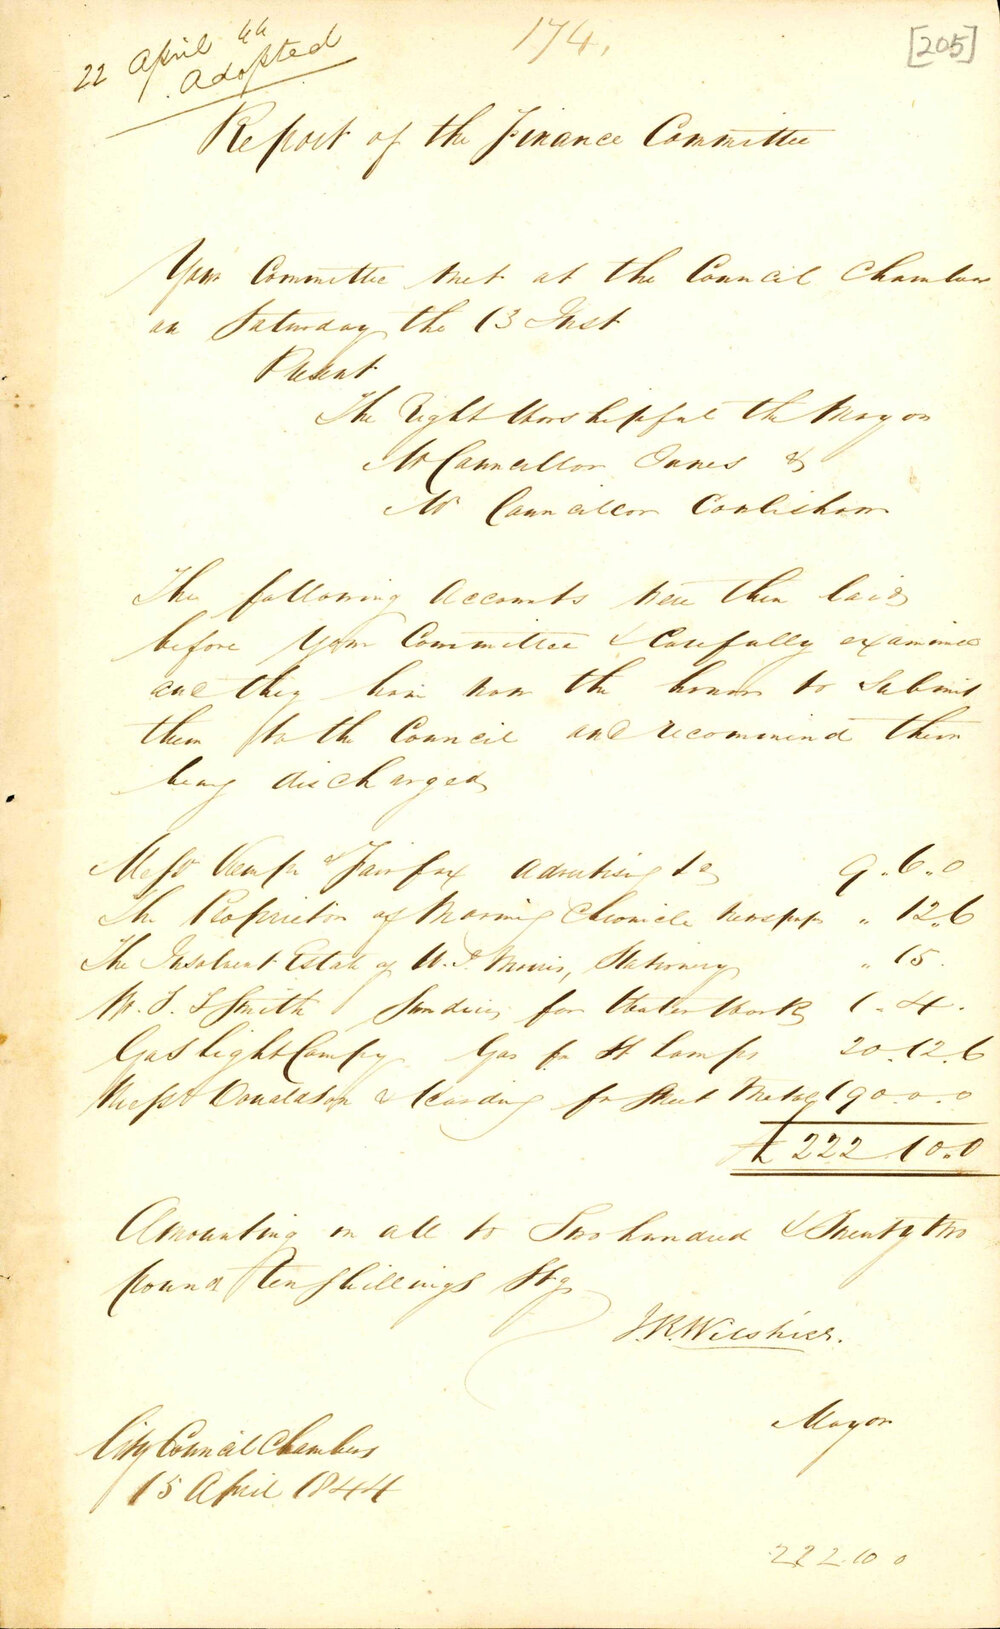 174.
[205]
22 April 44
Adopted
Report of the Finance Committee
Your Committee met at the Council Chambers
on Saturday the 13 Inst
Present
The Right Worshipful the Mayor
Mr Councillor Innes &
Mr Councillor Coulisham
The following Accounts were then laid
before Your Committee & Carefully examined
and they have now the honor to Submit
them to the Council and recommend them
being discharged
Messrs Kemp & Fairfax Advertising 9.6.0
The Proprietor of Morning Chronicle Newspaper " 12.6
The Insolvent Estate of W. P. Morris, Stationery " 15.
Mr. T. S Smith Sundries for Water Works 1.4.
Gas Light Compy Gas for St Lamps 20.12.6
Messrs Donaldson & for Street Metal 190.0.0
£ 222.10.0
Amounting in all to Two hundred & Twenty two
pound Ten Shillings Stg
J.R. Wilshire.
Mayor
City Council Chambers
15 April 1844
222.10 0